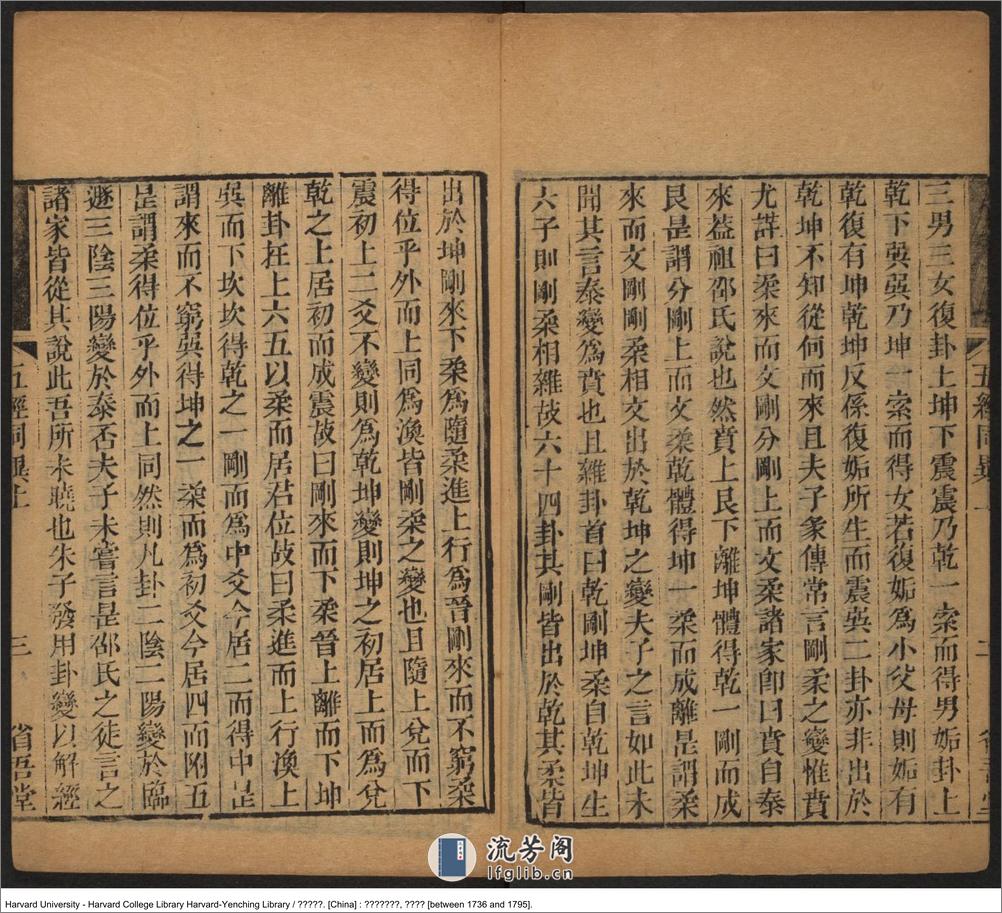 三男三女復卦上坤下震震乃乾一索而得男姤卦上
乾下巽巽乃坤一索而得女若復姤爲小父母則姤有
乾復有坤乾坤反係復姤所生而震巽二卦亦非出於
乾坤不知從何而來且夫子彖傳常言剛柔之變惟賁
尤詳曰柔來而文剛分剛上而文柔諸家卽曰賁自泰
來葢祖邵氏說也然賁上艮下離坤體得乾一剛而成
艮是謂分剛上而文柔乾體得坤一柔而成離是謂柔
來而文剛剛柔相文出於乾坤之變夫子之言如此未
聞其言泰變爲賁也且雜卦首曰乾剛坤柔自乾坤生
六子則剛柔相雜故六十四卦其剛皆出於乾其柔皆
五經同異上
二
省吾堂
出於坤剛來下柔爲隨柔進上行爲晉剛來而不窮柔
得位乎外而上同爲渙皆剛柔之變也且隨上兌而下
震初上二爻不變則爲乾坤變則坤之初居上而爲兌
乾之上居初而成震故曰剛來而下柔晉上離而下坤
離卦在上六五以柔而居君位故曰柔進而上行渙上
巽而下坎坎得乾之一剛而爲中爻今居二而得中是
謂來而不窮巽得坤之一柔而爲初爻今居四而附五
是謂柔得位乎外而上同然則凡卦二陰二陽變於臨
遯三陰三陽變於泰否夫子未嘗言是邵氏之徒言之
諸家皆從其說此吾所未曉也朱子發用卦變以解經
五經同異上
三
省吾堂
流芳阁
lfglib.cn
Harvard University - Harvard College Library Harvard-Yenching Library / ?????. [China] : ???????, ???? [between 1736 and 1795].